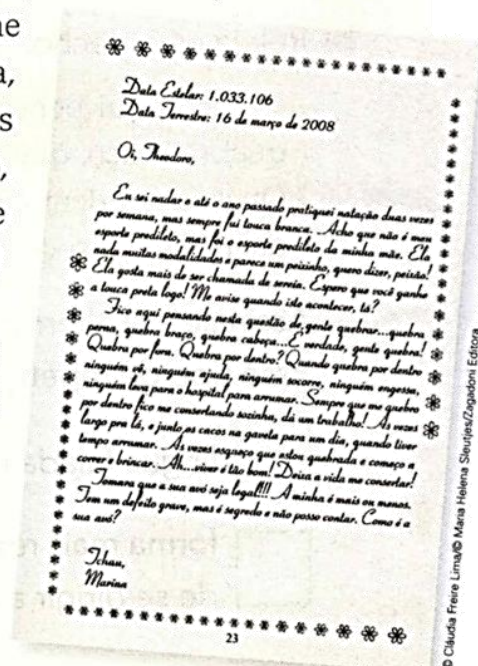 ne
a,
s
,
e
Data Estelar: 1.033.106
Data Terrestre: 16 de março de 2008
Oi, Theodoro,
Eu sei nadar e até o ano passado pratiquei natação duas vezes
por semana, mas sempre fui touca branca. Acho que não é meu
esporte predileto, mas foi o esporte predileto da minha mãe. Ela
nada muitas modalidades e parece um peixinho, quero dizer, peixão!
Ela gosta mais de ser chamada de sereia. Espero que você ganhe
a touca preta logo! Me avise quando isto acontecer, tá?
Fico aqui pensando nesta questão de gente quebrar...quebra
perna, quebra braço, quebra cabeça...É verdade, gente quebra!
Quebra por fora. Quebra por dentro? Quando quebra por dentro
ninguém vê, ninguém ajuda, ninguém socorre, ninguém engessa,
ninguém leva para o hospital para arrumar. Sempre que me quebro
por dentro fico me consertando sozinha, dá um trabalho! Às vezes
largo pra lá, e junto os cacos na gaveta para um dia, quando tiver
tempo arrumar. Às vezes esqueço que estou quebrada e começo a
correr e brincar. Ah...viver é tão bom! Deixa a vida me consertar!
Tomara que a sua avó seja legal!!!! A minha é mais ou menos.
Tem um defeito grave, mas é segredo e não posso contar. Como é a
sua avó?
Tchau,
Marina
23
© Cláudia Freire Lima/© Maria Helena Sleutjes/Zagadoni Editora